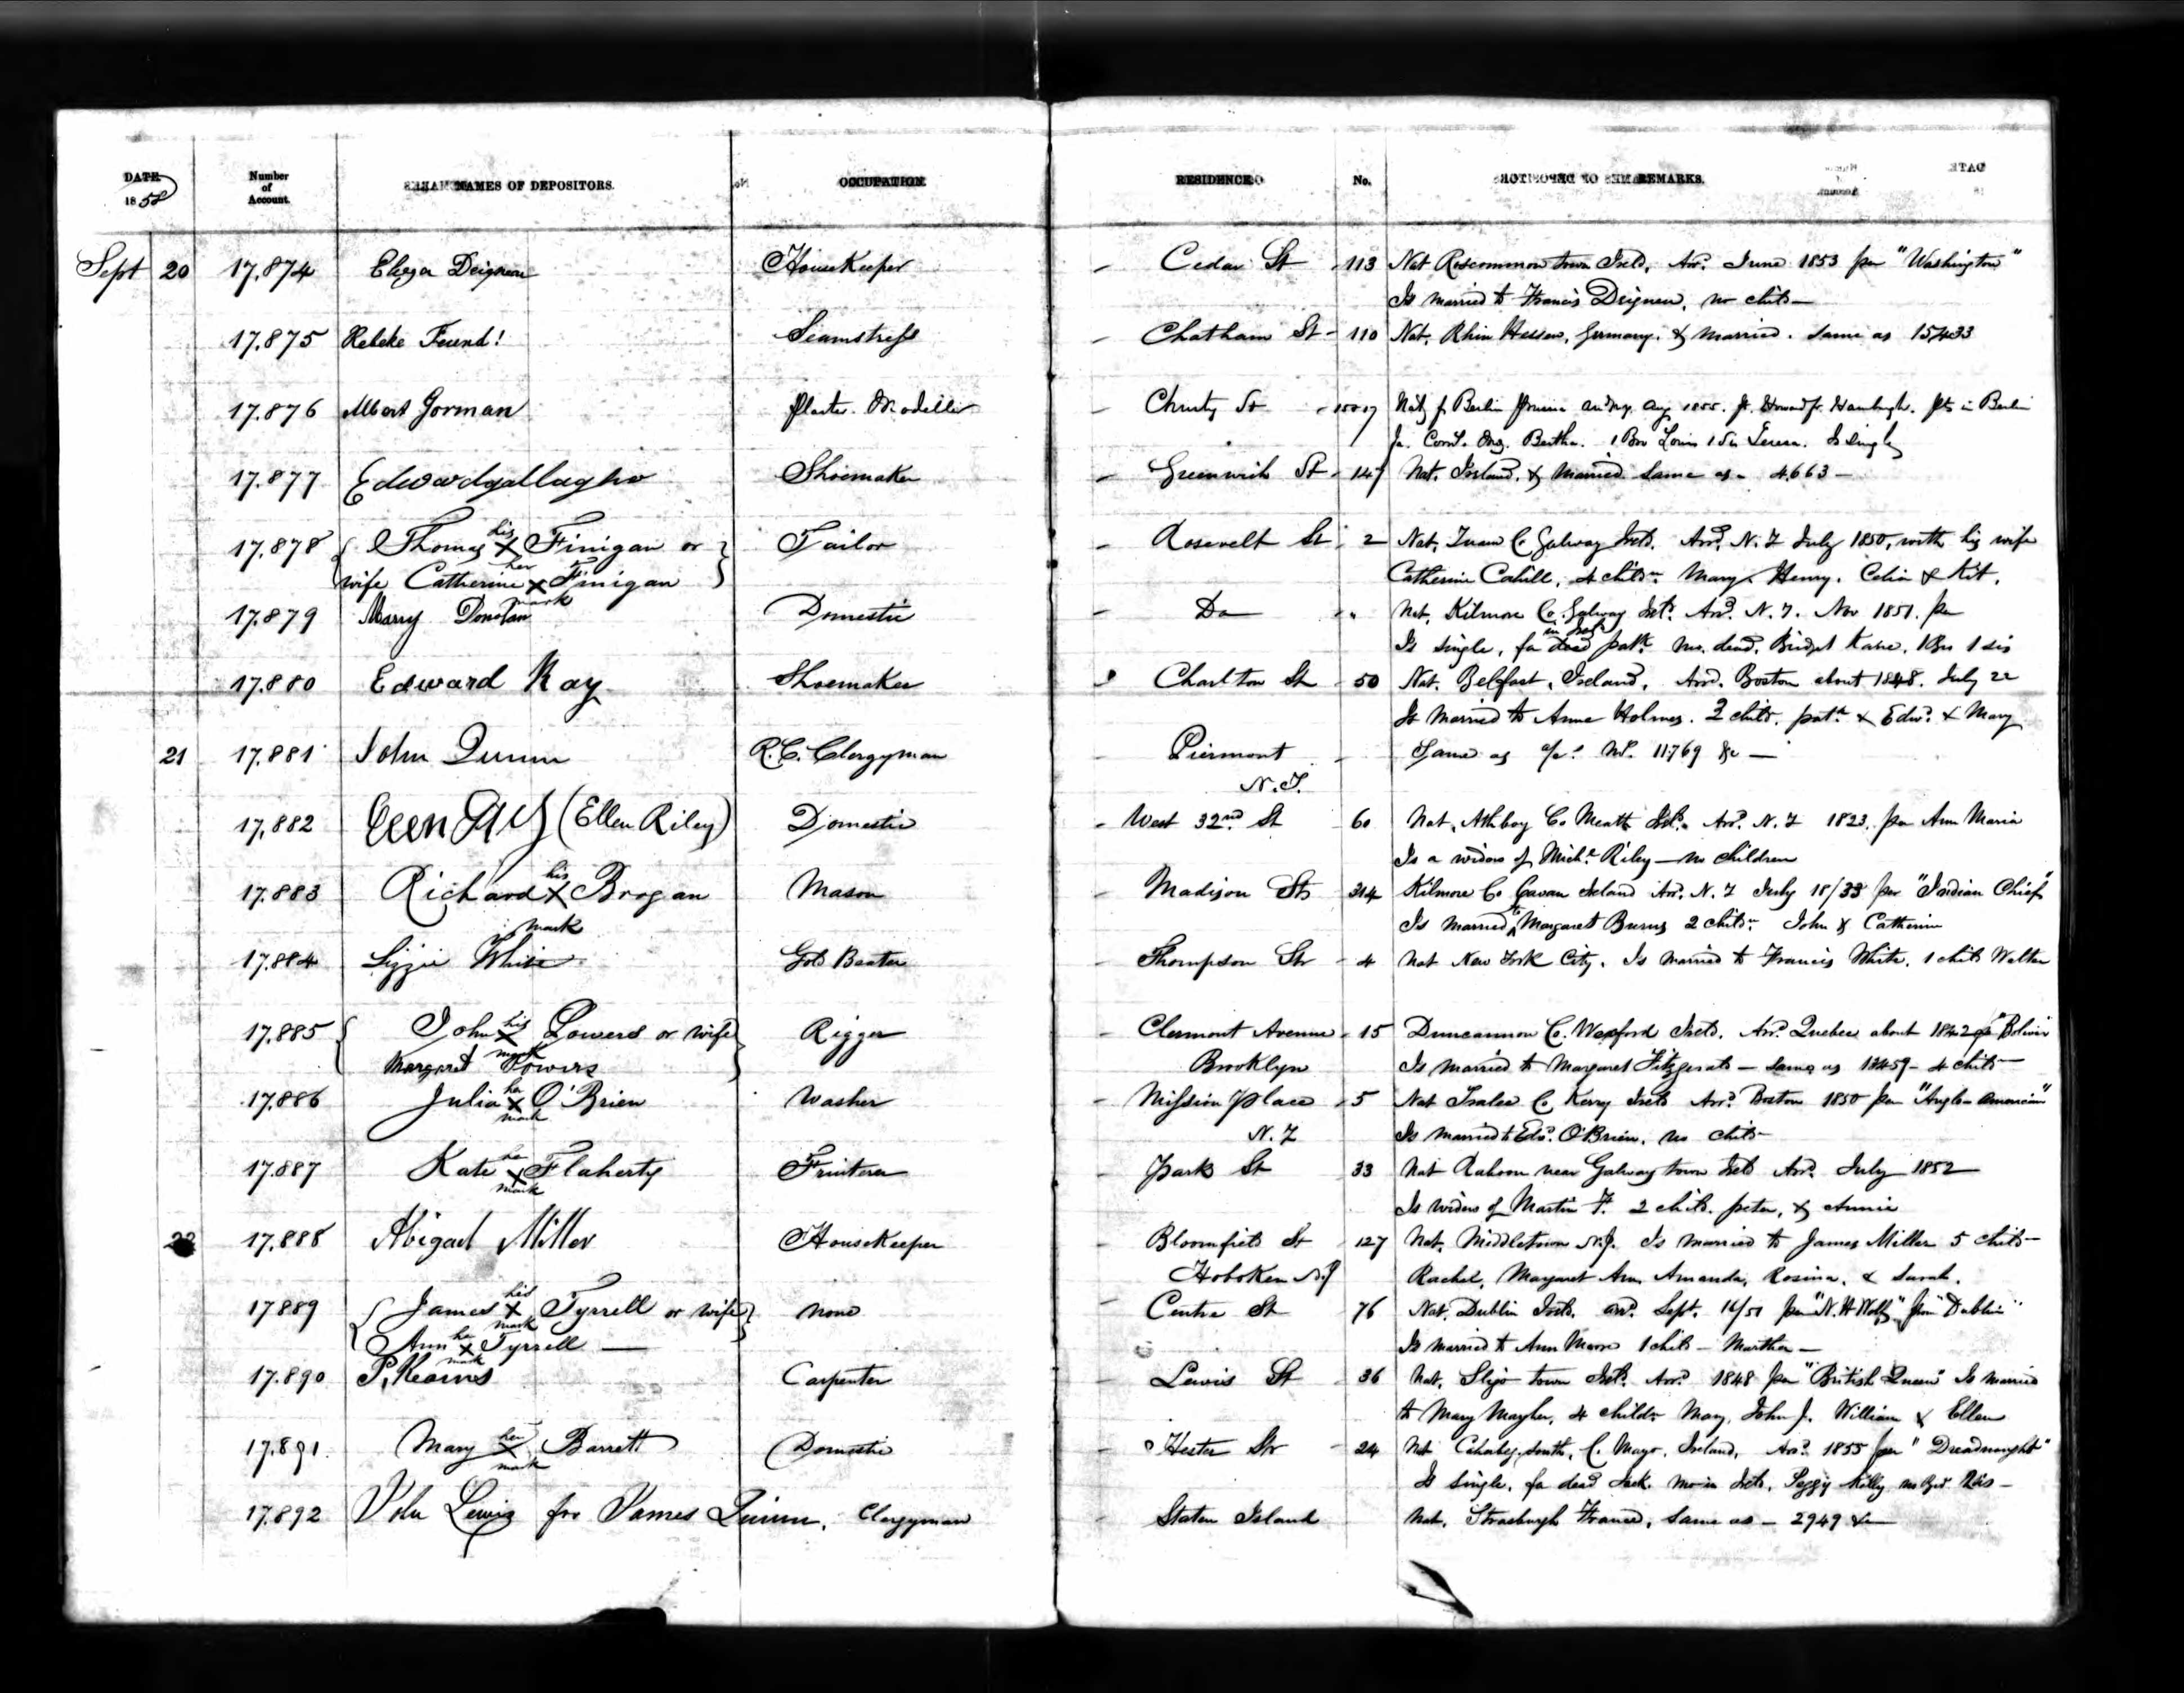 DATE 1858 Number of Account. NAMES OF DEPOSITORS. OCCUPATION. RESIDENCE. No. REMARKS.
Sept 20 17.874 Eliza Deignan HouseKeeper Cedar St 113 Nat Roscommon town Ireld, Arrd. June 1853 per "Washington"
Is married to Francis Deignan, no child
17.875 Rebeke Feund! Seamstress Chatham St 110 Nat. Rhin Hessen, Germany. & married. Same as 15433
17.876 Albert Gorman Plaster Modeller Christy St Berlin Aug 1855. in Berlin
Bertha. 1 Bro Louis 1 Sis Is single
17.877 Edward gallagher Shoemaker Greenwich St 147 Nat. Ireland. & married same as 4.663
17.878 Thomas his X Finigan or Tailor Rosevelt St 2 Nat. Tuam Co Galway Ireld. Arrd. N.Y July 1850, with his wife
wife Catherine her X Finigan mark Catherine Cahill, 4 childn. Mary, Henry, Celia & Kit.
17.879 Marry Donolan Domestic Do " Nat. Kilmore Co. Galway Ireld. Arrd. N.Y. Nov 1851. per
Is single, fa in Ireld Patk. mo. dead, Bridget Kane, 1 Bro 1 sis
17.880 Edward Kay Shoemaker Charlton St 50 Nat. Belfast, Ireland, Arrd. Boston about 1848. July 22
Is married to Anne Holmes. 3 child. Patk & Edwd. & Mary
21 17.881 John Quinn R.C. Clergyman Piermont Same as a/c. No. 11769 &c
N.Y.
17.882 (Ellen Riley) Domestic West 32nd St 60 Nat. Athboy Co Meath Ireld. Arrd. N.Y 1823, per Ann Maria
Is a widow of Michl. Riley — no children
17.883 Richard his X Brogan Mason Madison St 314 Kilmore Co Cavan Ireland Arrd. N.Y July 18/33 per "Indian Chief"
mark Is married to Margaret Burns 2 childn. John & Catherine
17.884 Lizzie White Gold Beater Thompson St 4 Nat New York City. Is married to Francis White. 1 child Walter
17.885 John his X Powers or wife Rigger Clermont Avenue 15 Duncannon C. Wexford Ireld. Arrd. Quebec about 1842 per "Bolivar
Margaret mark Powers Brooklyn Is married to Margaret Fitzgerald — same as 13459 — 4 child
17.886 Julia her X O'Brien Washer Mission place 5 Nat Tralee C. Kerry Ireld Arrd. Boston 1850 per "Anglo American"
mark N.Y Is married to Edwd. O'Brien, no child
17.887 Kate her X Flaherty Fruiterer Park St 33 Nat Rahoon near Galway town Ireld Arrd. July 1852
mark Is widow of Martin F. 2 child. Peter, & Annie
22 17.888 Abigael Miller HouseKeeper Bloomfield St 127 Nat. Middletown N.J. Is married to James Miller 5 child
Hoboken N.J Rachel, Margaret Ann, Amanda, Rosina, & Sarah.
17889 James his X Tyrrell or wife none Centre St 76 Nat. Dublin Ireld. arrd. Sept. 16/51 per "N. H Wolfe" from "Dublin"
mark Ann her X Tyrrell Is married to Ann Moore 1 child — Martha
mark
17.890 P. Kearns Carpenter Lewis St 36 Nat. Sligo town Ireld. Arrd. 1848 per "British Queen" Is married
to Mary Mayher, 4 childn Mary, John J. William & Ellen
17.891. Mary her X Barrett Domestic Hester St 24 Nat South, C. Mayo, Ireland, Arrd. 1855 per "Dreadnought"
mark Is single, fa dead Jack. mo in Ireld, Peggy Kelly no Bro. 2 sis
17.892 John Lewis for James Quinn, Clergyman Staten Island Nat. Strasburgh France, same as — 2949 &c